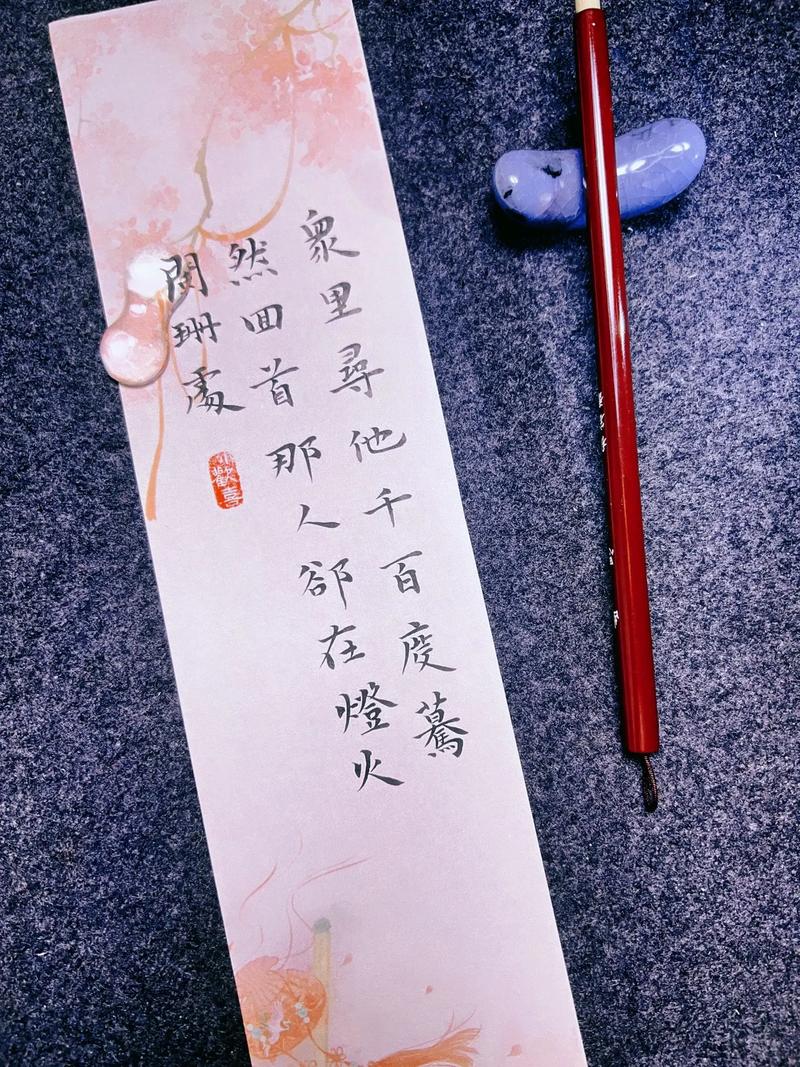 衆里尋他千百度驀
然回首那人卻在燈火
闌珊處
小歡喜